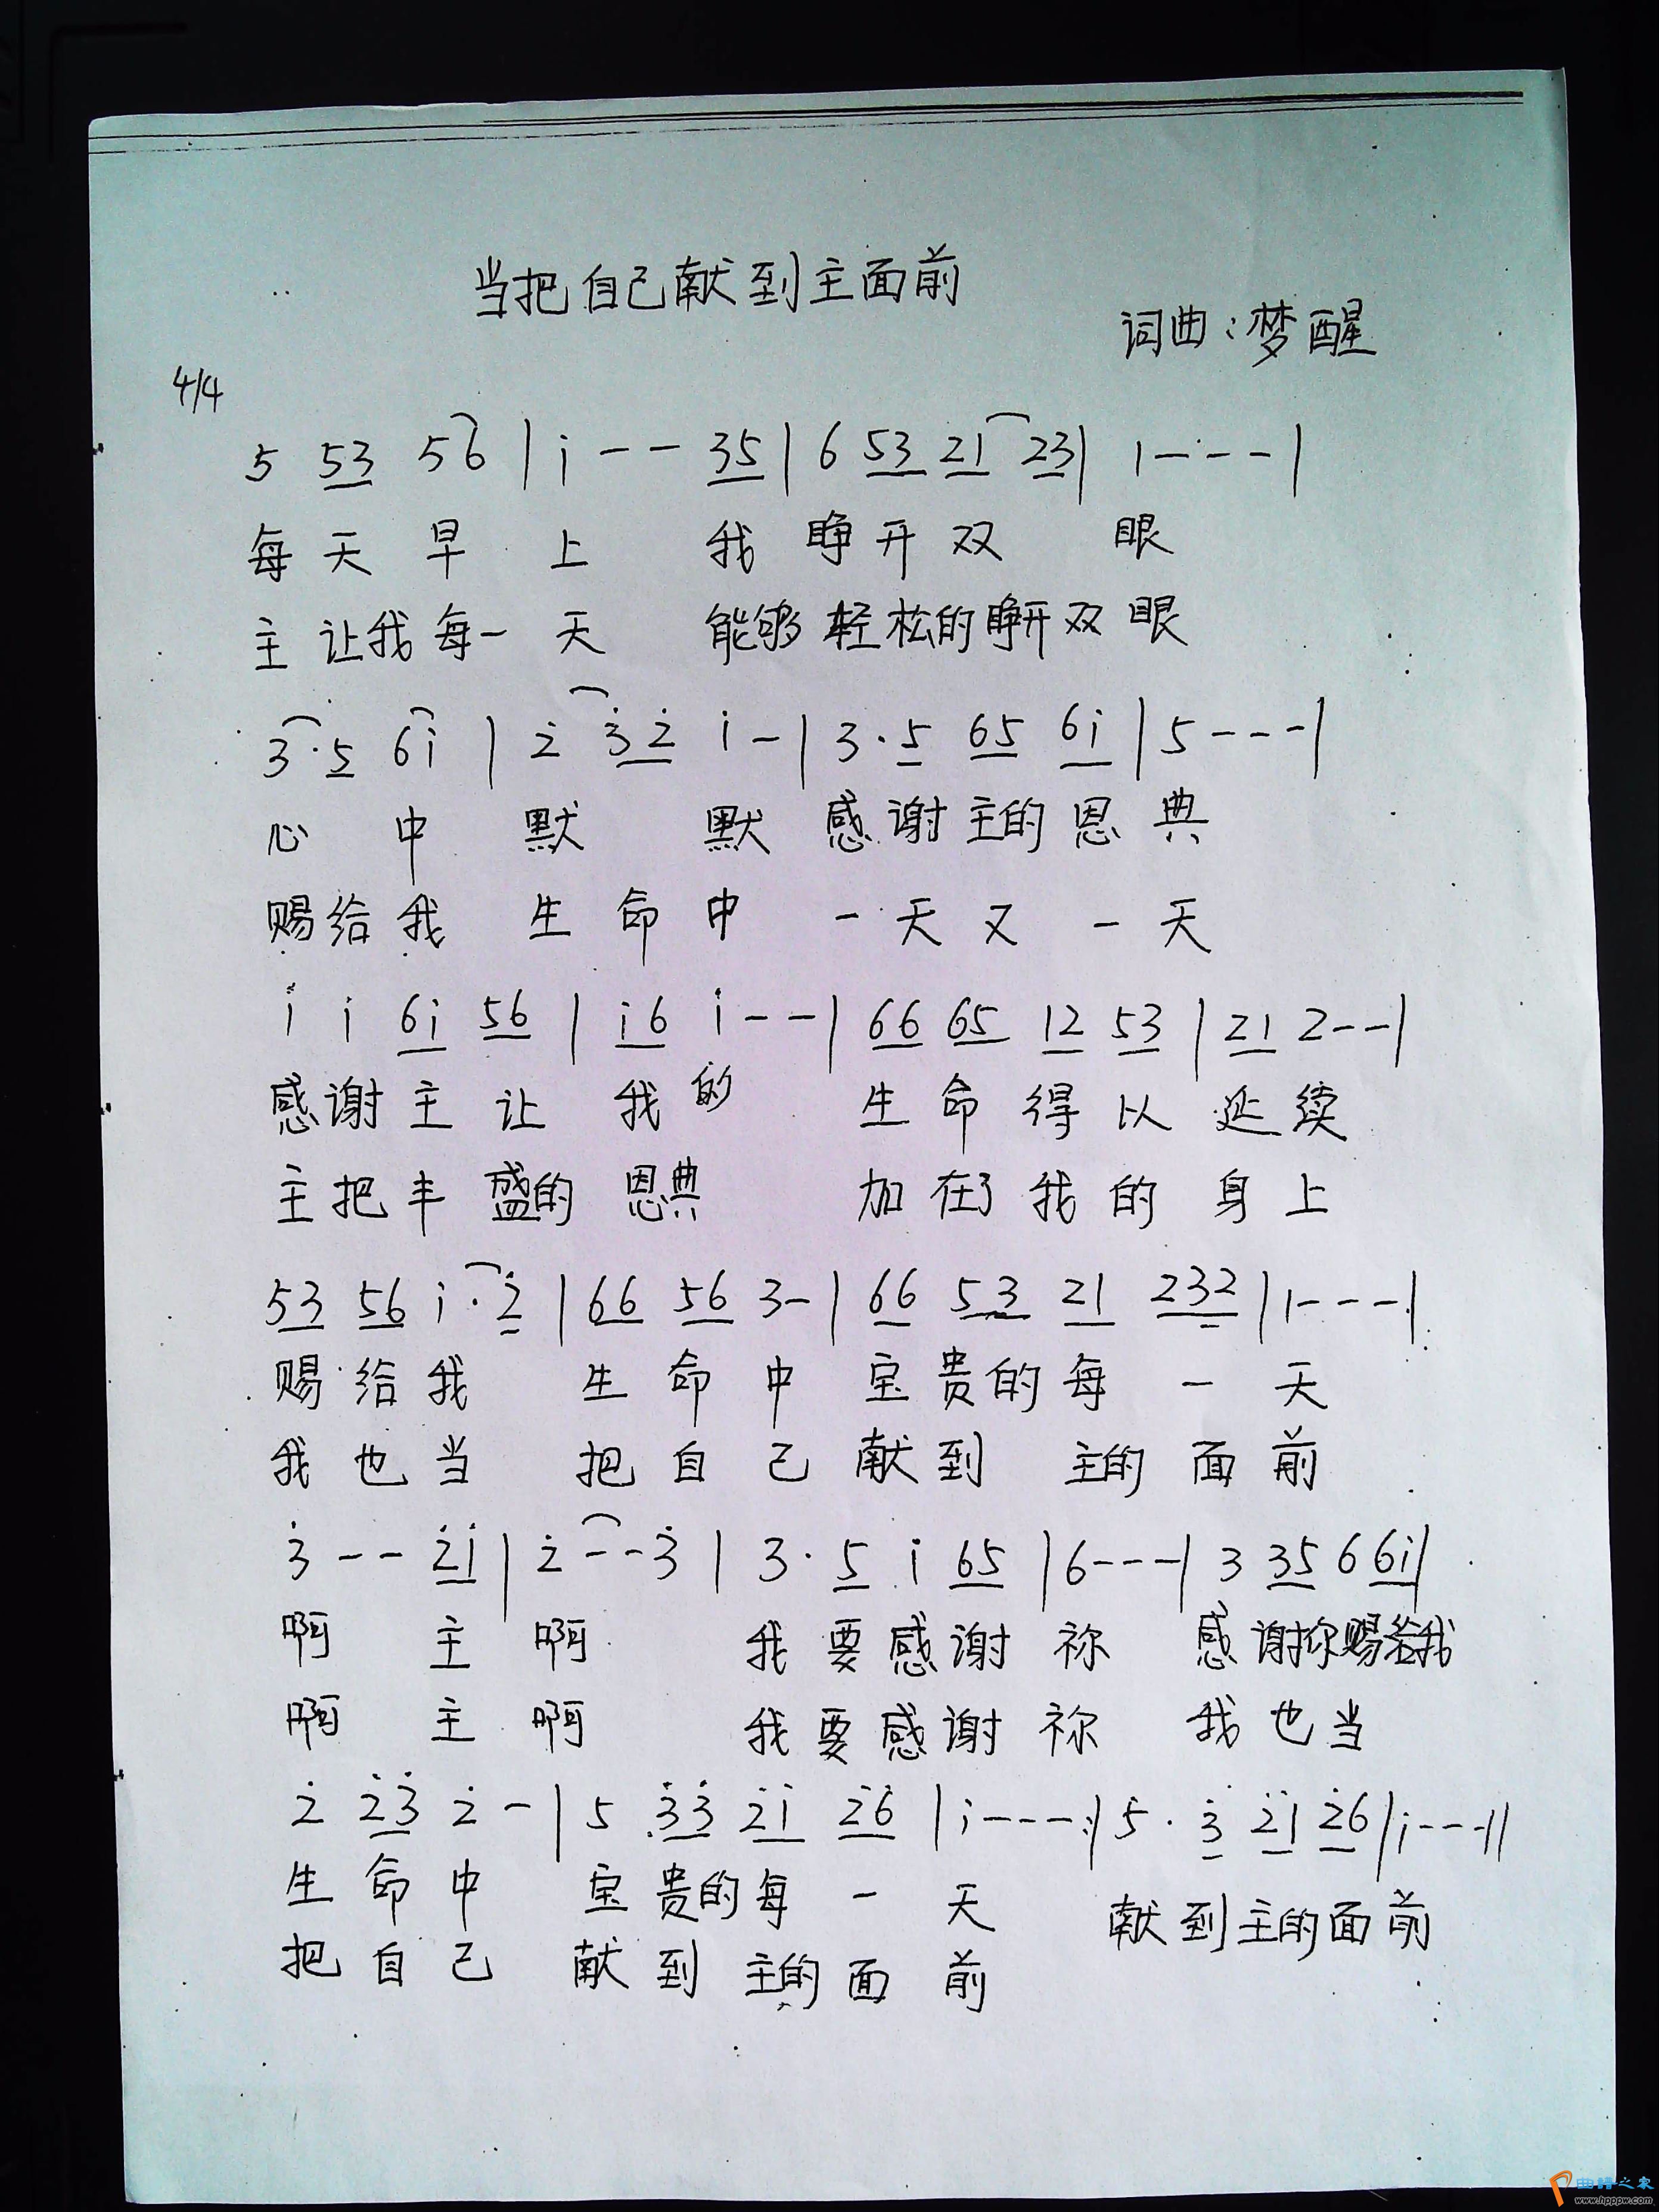 当把自己献到主面前
词曲:梦醒
4/4
5 53 56 | i - - 35 | 6 53 21 23 | 1 - - - |
每天早上 我睁开双 眼
主让我每一天 能够轻松的睁开双眼
3·5 6i | 2̇ 3̇2̇ i - | 3·5 65 6i | 5 - - - |
心中默默感谢主的恩典
赐给我生命中一天又一天
i i 6i 56 | i6 i - - | 66 65 12 53 | 21 2 - - |
感谢主让我的 生命得以延续
主把丰盛的恩典 加在了我的身上
53 56 i·2̇ | 66 56 3 - | 66 53 21 232 | 1 - - - |
赐给我 生命中宝贵的每一天
我也当 把自己献到主的面前
3̇ - - 2̇i | 2̇ - - 3̇ | 3·5 i 65 | 6 - - - | 3 35 6 6i |
啊 主啊 我要感谢祢 感谢你赐给我
啊 主啊 我要感谢祢 我也当
2̇ 2̇3̇ 2̇ - | 5 3̇3̇ 2̇i 2̇6 | i - - - :| 5·3̇ 2̇i 2̇6 | i - - - ||
生命中 宝贵的每一天 献到主的面前
把自己 献到主的面前
曲谱之家
www.hppw.com